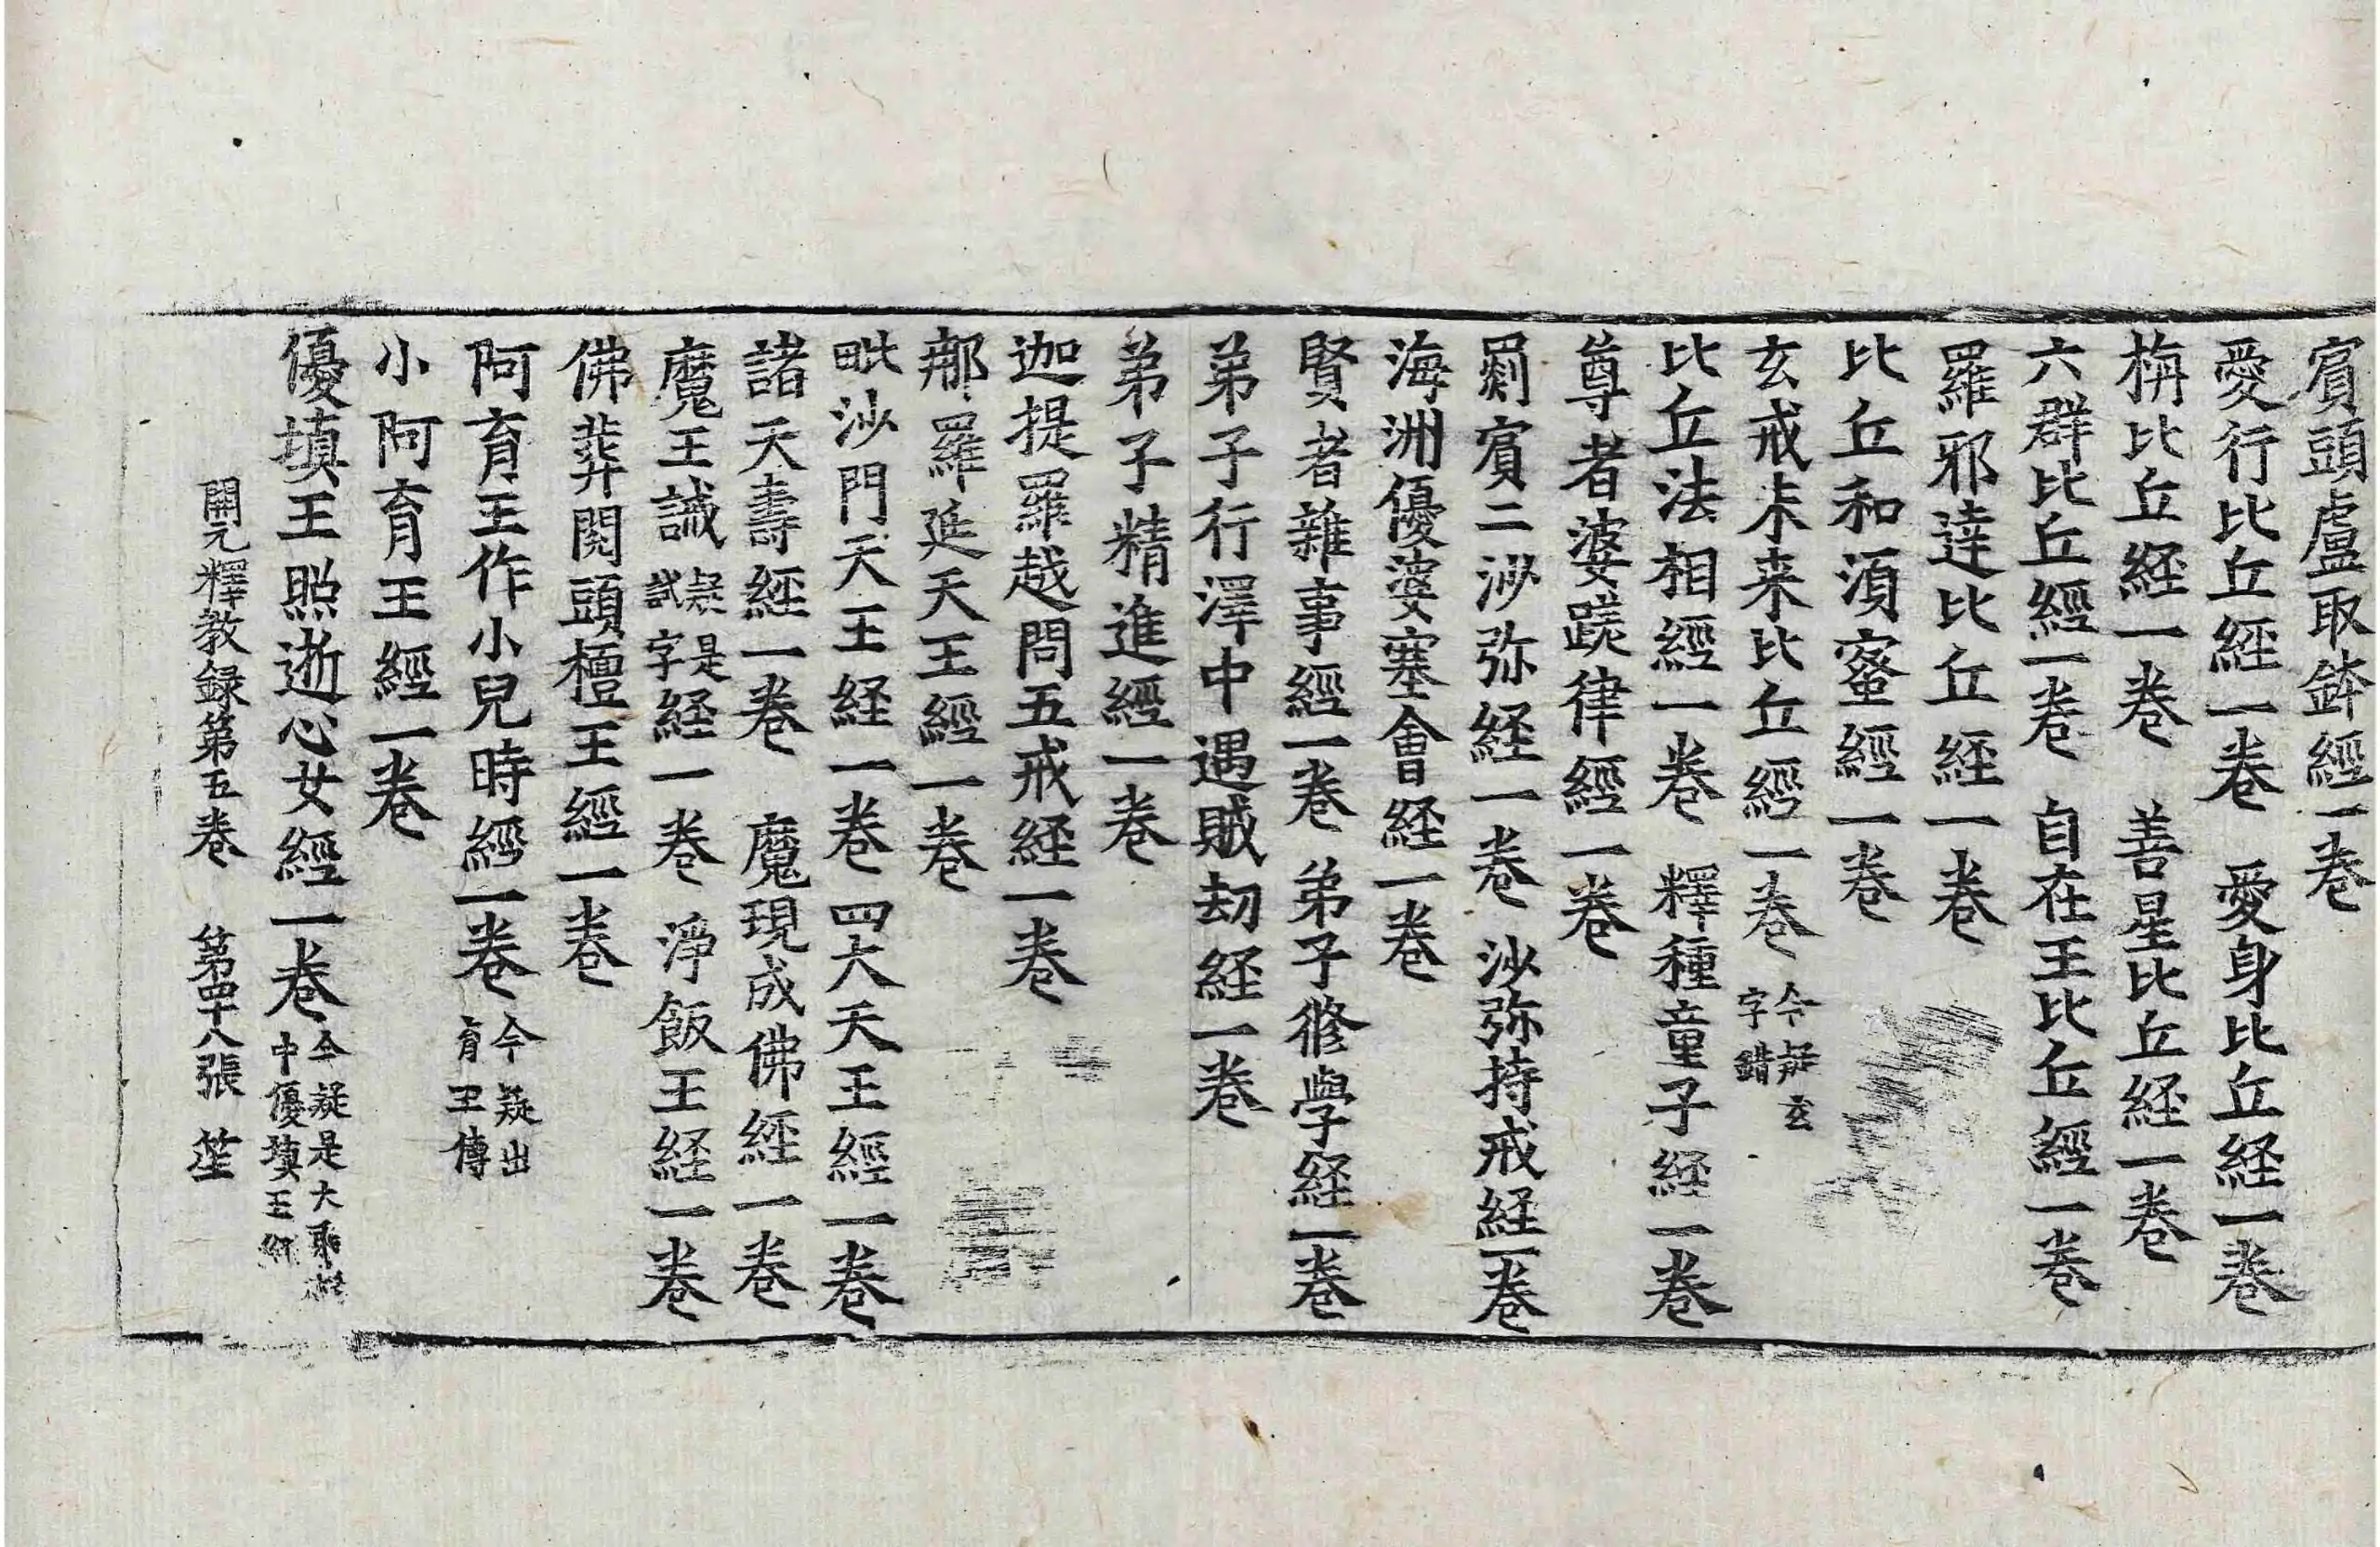 賔頭盧取鉢經一卷
愛行比丘經一卷　愛身比丘経一卷
栴比丘経一卷　善星比丘経一卷
六群比丘經一卷　自在王比丘經一卷
羅邪達比丘経一卷
比丘和湏蜜經一卷
玄戒未来比丘經一卷 今疑玄字錯
比丘法相經一卷　釋種童子経一卷
尊者婆蹉律經一卷
罽賔二沙弥経一卷　沙弥持戒経一卷
海洲優婆塞會経一卷
賢者雜事經一卷　弟子修學経一卷
弟子行澤中遇賊劫経一卷
弟子精進經一卷
迦提羅越問五戒経一卷
那羅延天王經一卷
毗沙門天王経一卷　四大天王經一卷
諸天壽經一卷　魔現成佛經一卷
魔王誡 疑是試字 経一卷　淨飯王経一卷
佛葬閱頭檀王經一卷
阿育王作小兒時經一卷 今疑出育王傳
小阿育王經一卷
優填王照逝心女經一卷 今疑是大 中優填王
開元釋教録第五卷　第四十八張　笙